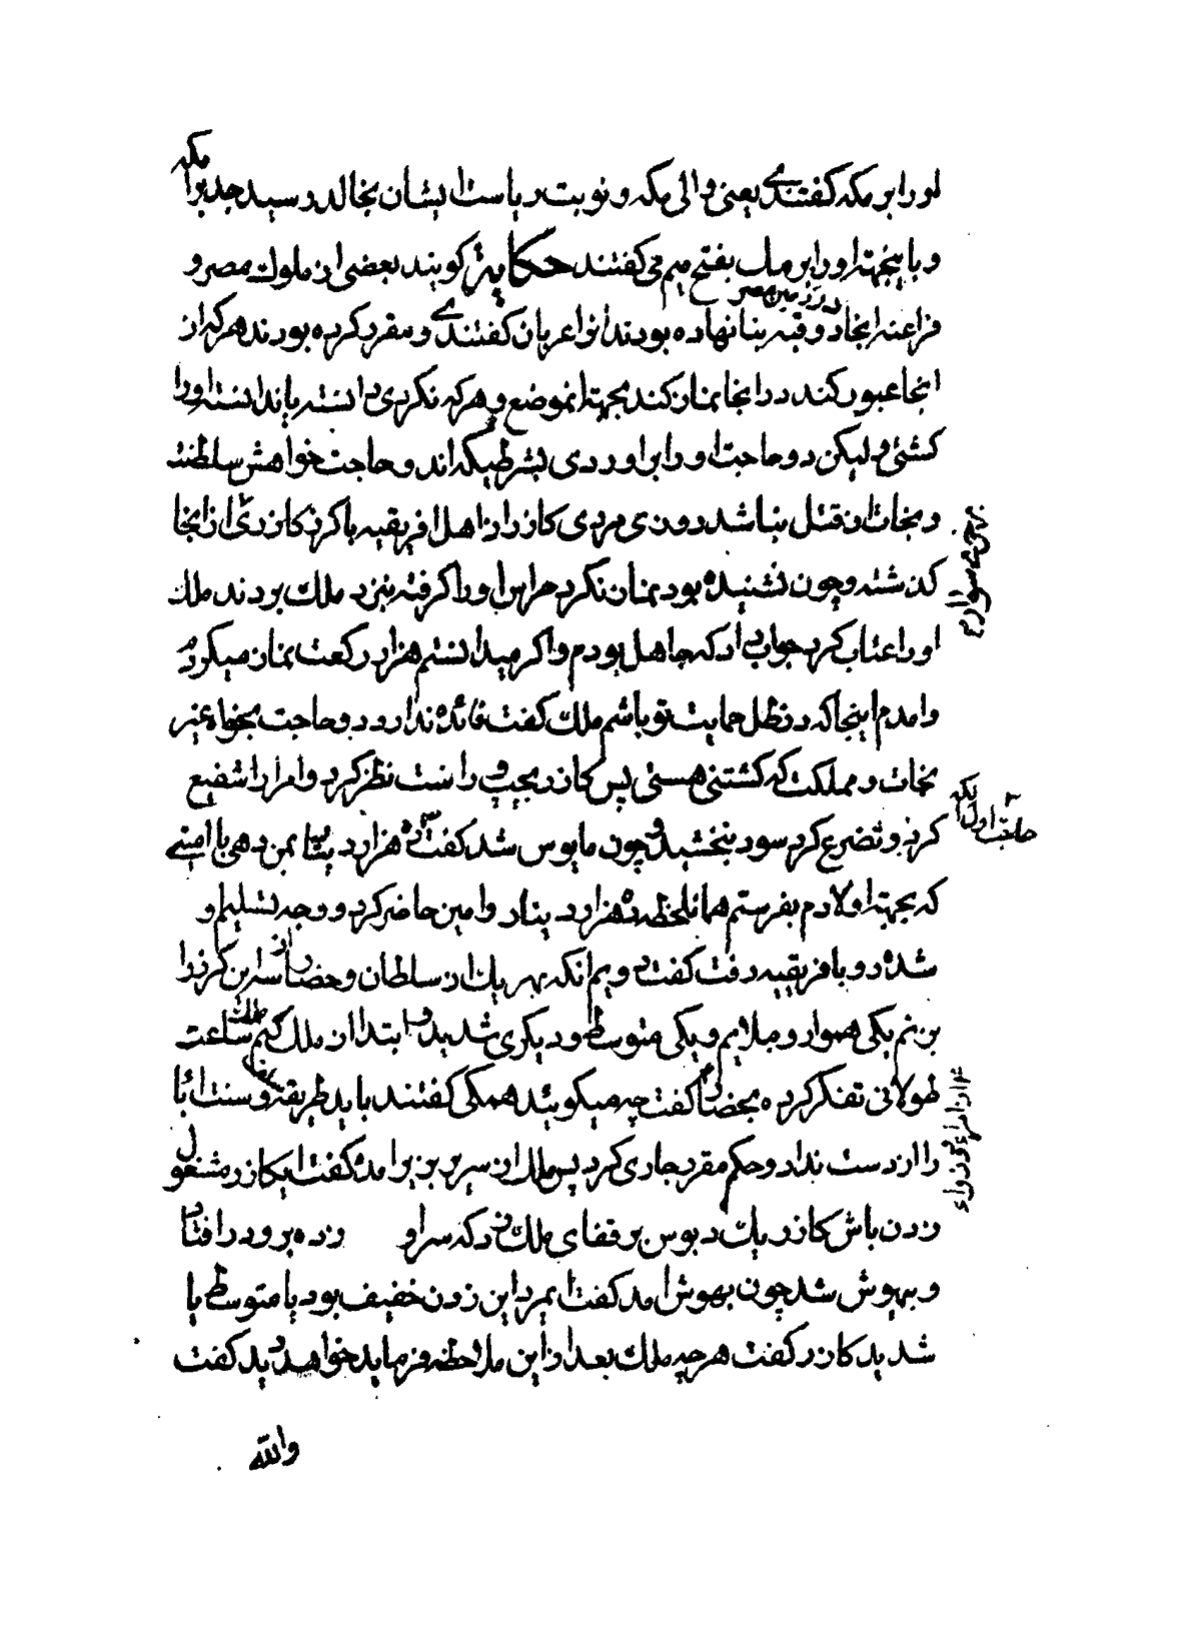 او را بر مکه گفتندی یعنی والی مکه و نوبت ریاست ایشان بخالد رسید جد برامکه
و باینجهة او را برمک بفتح میم می گفتند حکایة گویند بعضی از ملوک مصر و
فراعنه انجا در زمین مصر دو قبه بنا نهاده بودند انرا عریان گفتندی و مقرر کرده بودند هر که از
انجا عبور کند در انجا نماز کند بجهة انموضع و هر که نکردی دانسته یا ندانسته او را
کشتی و لیکن دو حاجت او را براوردی بشرطیکه اند و حاجت خواهش سلطنت
و نجات از قتل نباشد روزی مردی کازر از اهل افریقیه با کرز کازری از انجا
گذشته و چون نشنیده بود نماز نکرد حراس او را گرفته بنزد ملک بردند ملک
او را عتاب کرد جواب داد که جاهل بودم و اگر میدانستم هزار رکعت نماز میکردم
و امدم اینجا که در ظل حمایت تو باشم ملک گفت فائده ندارد دو حاجت بخواه غیر
نجات و مملکت که کشتنی هستی پس کازر بچپ و راست نظر کرد و امرا را شفیع
کرد و تضرع کرد سود نبخشید و چون مایوس شد گفت ده هزار دینار بمن دهی با امینی
که بجهة اولادم بفرستم همان لحظه ده هزار دینار و امین حاضر کرد و وجه تسلیم او
شده رو بافریقیه رفت گفت دویم انکه بهر یک از سلطان و حضار سه از این کرز را
بزنم یکی هموار و ملایم و یکی متوسط و دیگری شدید و ابتدا از ملک کنم ملک ساعت
طولانی تفکر کرده بحضار گفت چه میگوئید همگی گفتند باید طریقه و سنت ابا
را از دست نداد و حکم مقرر جاری کرد پس ملک از سریر بزیر امد گفت ایکازر مشغول
زدن باش کازر یک دبوس بر قفای ملک زد که سر او زده برو در افتاد
و بیهوش شد چون بهوش امد گفت ایمرد این زدن خفیف بود یا متوسط یا
شدید کازر گفت هر چه ملک بعد از این ملاحظه فرماید خواهد دید گفت
والله
حاجت اول انکه